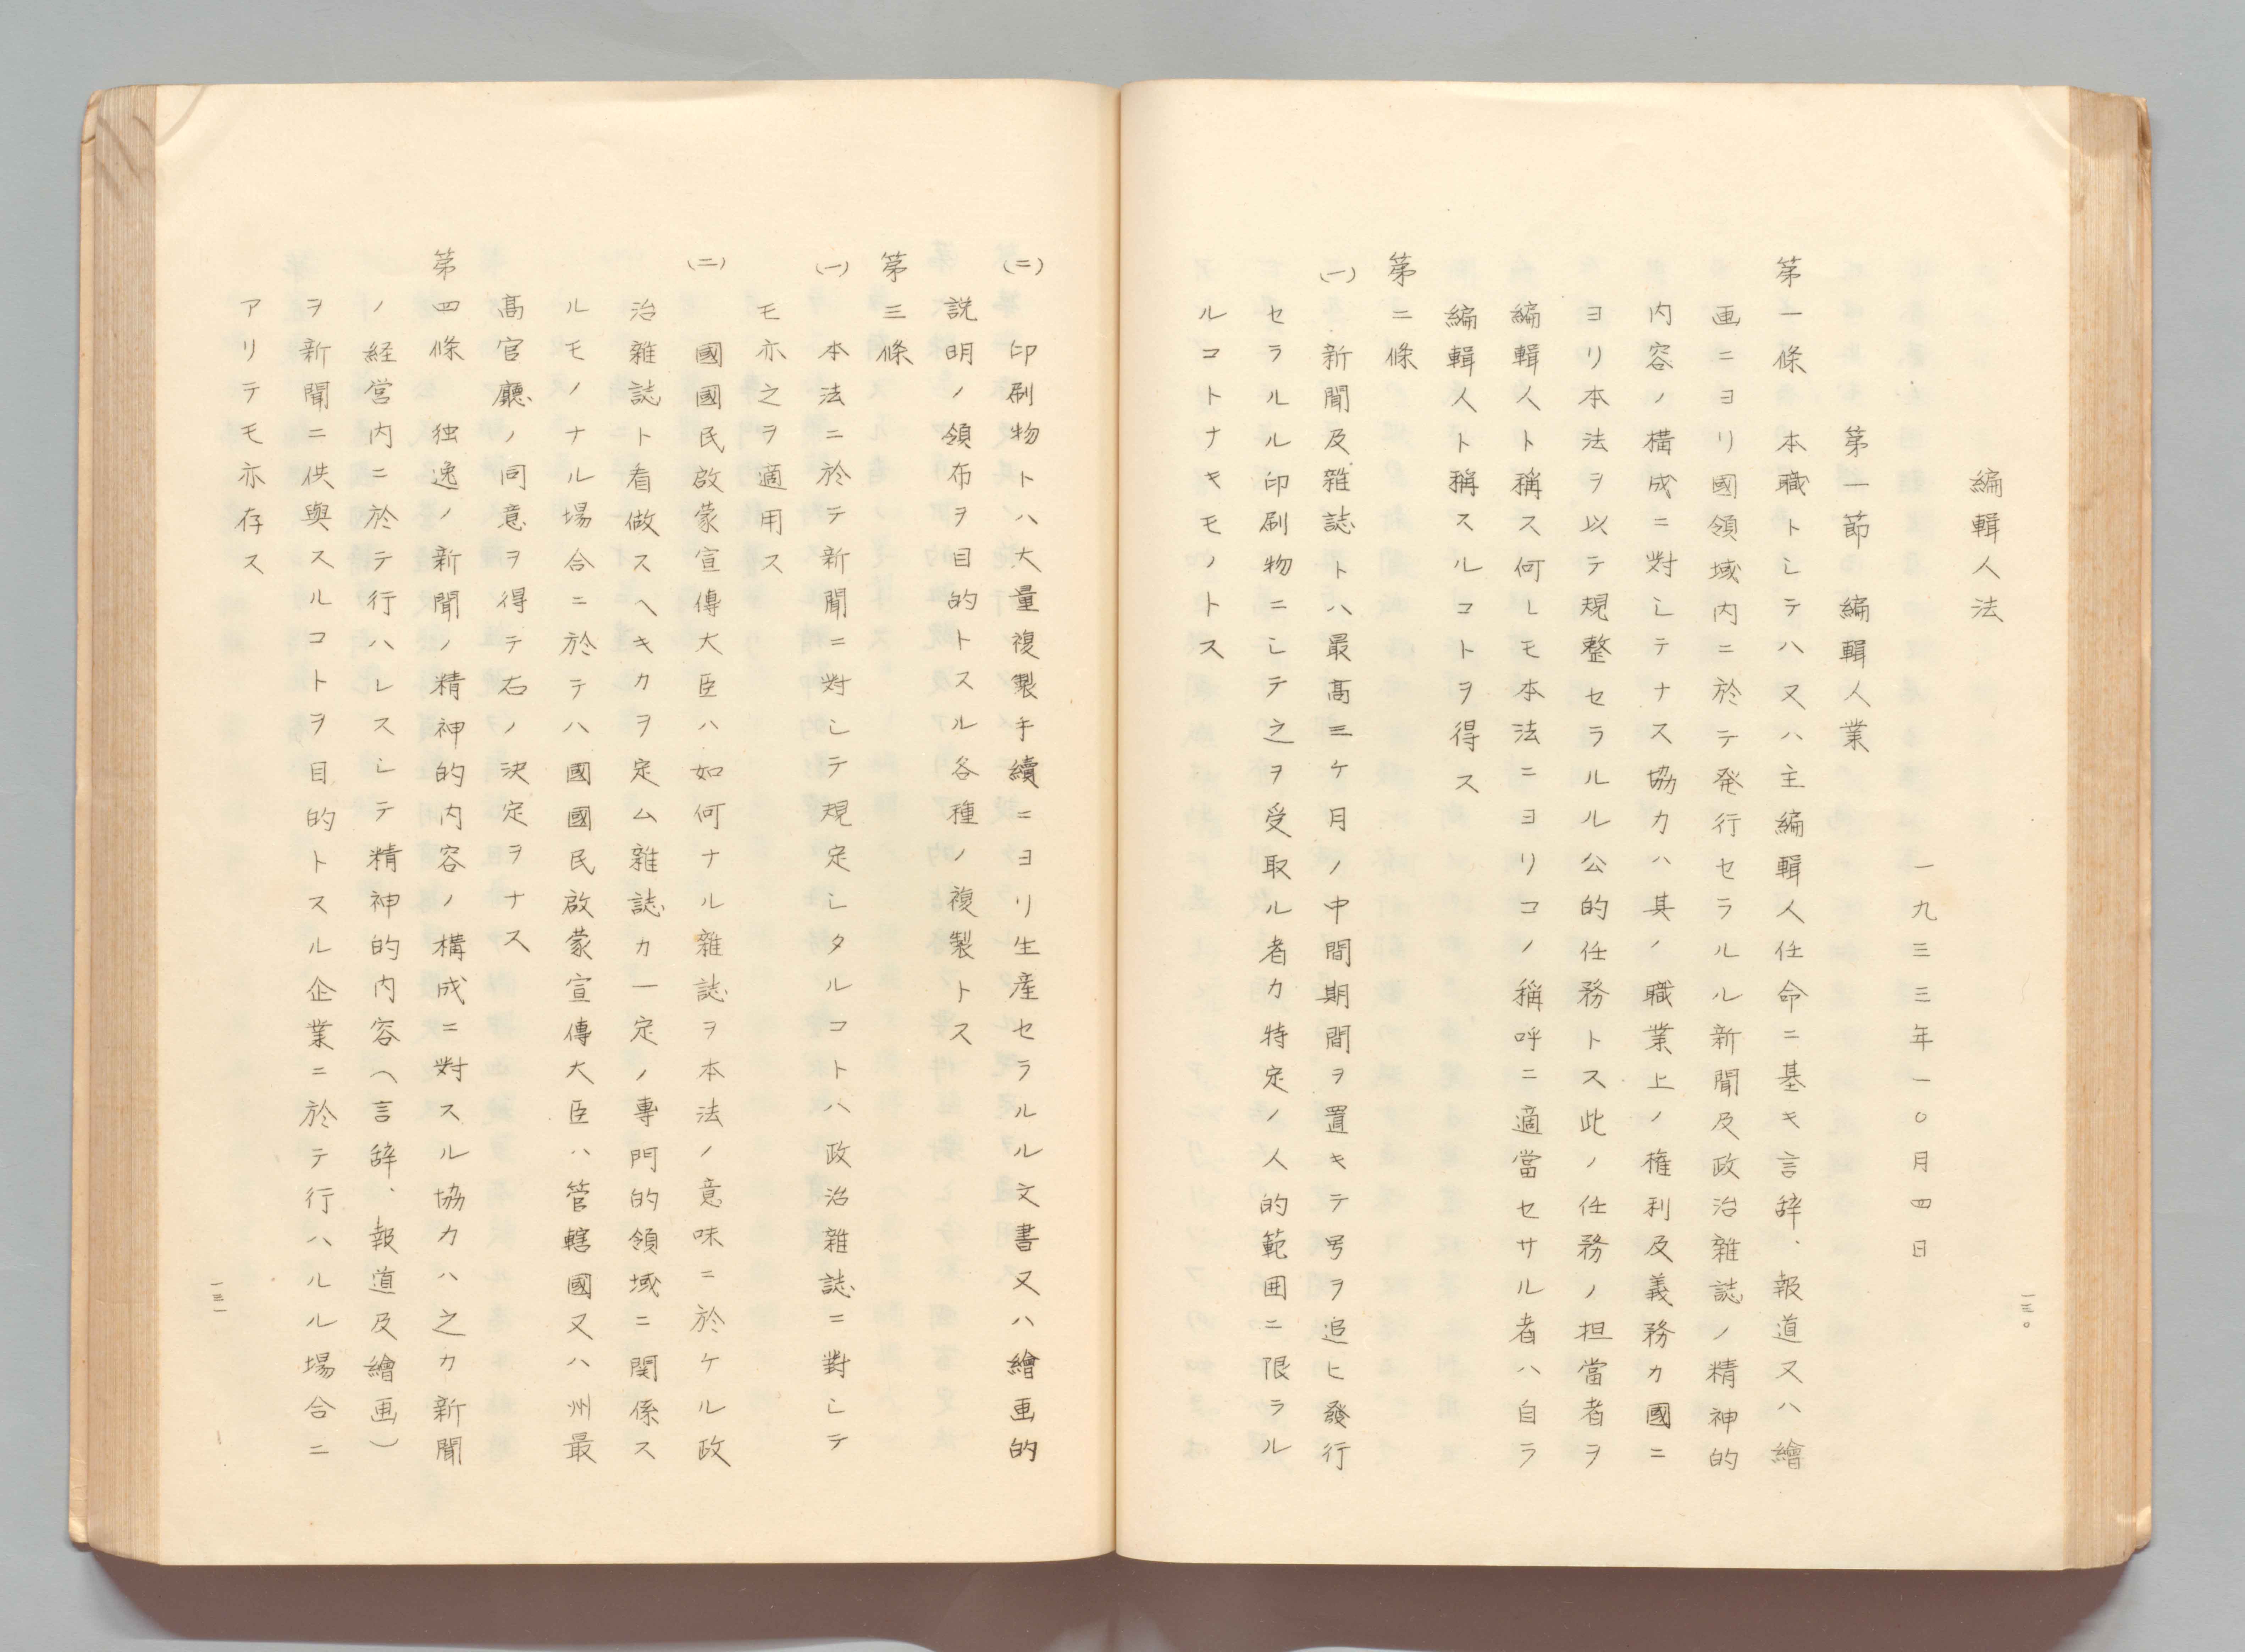 編輯人法
一九三三年一〇月四日
第一節 編輯人業
第一條 本職トシテハ又ハ主編輯人任命ニ基キ言辞、報道又ハ繪
画ニヨリ國領域内ニ於テ発行セラルル新聞及政治雜誌ノ精神的
内容ノ構成ニ對シテナス協力ハ其ノ職業上ノ権利及義務カ國ニ
ヨリ本法ヲ以テ規整セラルル公的任務トス此ノ任務ノ担當者ヲ
編輯人ト稱ス何レモ本法ニヨリコノ稱呼ニ適當セサル者ハ自ラ
編輯人ト稱スルコトヲ得ス
第二條
(一) 新聞及雜誌トハ最高三ケ月ノ中間期間ヲ置キテ号ヲ追ヒ發行
セラルル印刷物ニシテ之ヲ受取ル者カ特定ノ人的範囲ニ限ラル
ルコトナキモノトス
一三〇
(二) 印刷物トハ大量複製手續ニヨリ生産セラルル文書又ハ繪画的
説明ノ領布ヲ目的トスル各種ノ複製トス
第三條
(一) 本法ニ於テ新聞ニ對シテ規定シタルコトハ政治雜誌ニ對シテ
モ亦之ヲ適用ス
(二) 國國民啟蒙宣傳大臣ハ如何ナル雜誌ヲ本法ノ意味ニ於ケル政
治雜誌ト看做スヘキカヲ定ム雜誌カ一定ノ專門的領域ニ関係ス
ルモノナル場合ニ於テハ國國民啟蒙宣傳大臣ハ管轄國又ハ州最
高官廳ノ同意ヲ得テ右ノ決定ヲナス
第四條 独逸ノ新聞ノ精神的内容ノ構成ニ對スル協力ハ之カ新聞
ノ経営内ニ於テ行ハレスシテ精神的内容(言辞、報道及繪画)
ヲ新聞ニ供與スルコトヲ目的トスル企業ニ於テ行ハルル場合ニ
アリテモ亦存ス
一三一